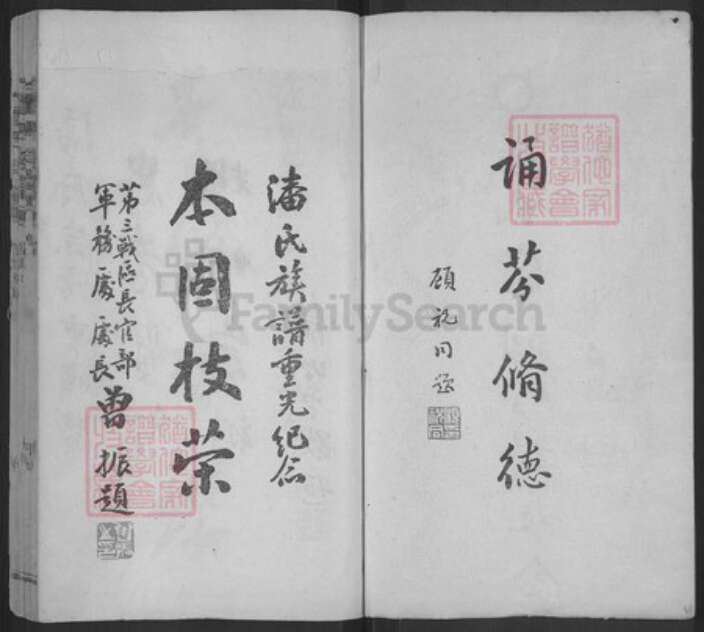 誦芬脩德
顧祝同題
潘氏族譜重光紀念
本固枝榮
第三戰區長官部
軍務處處長曾振題
FamilySearch